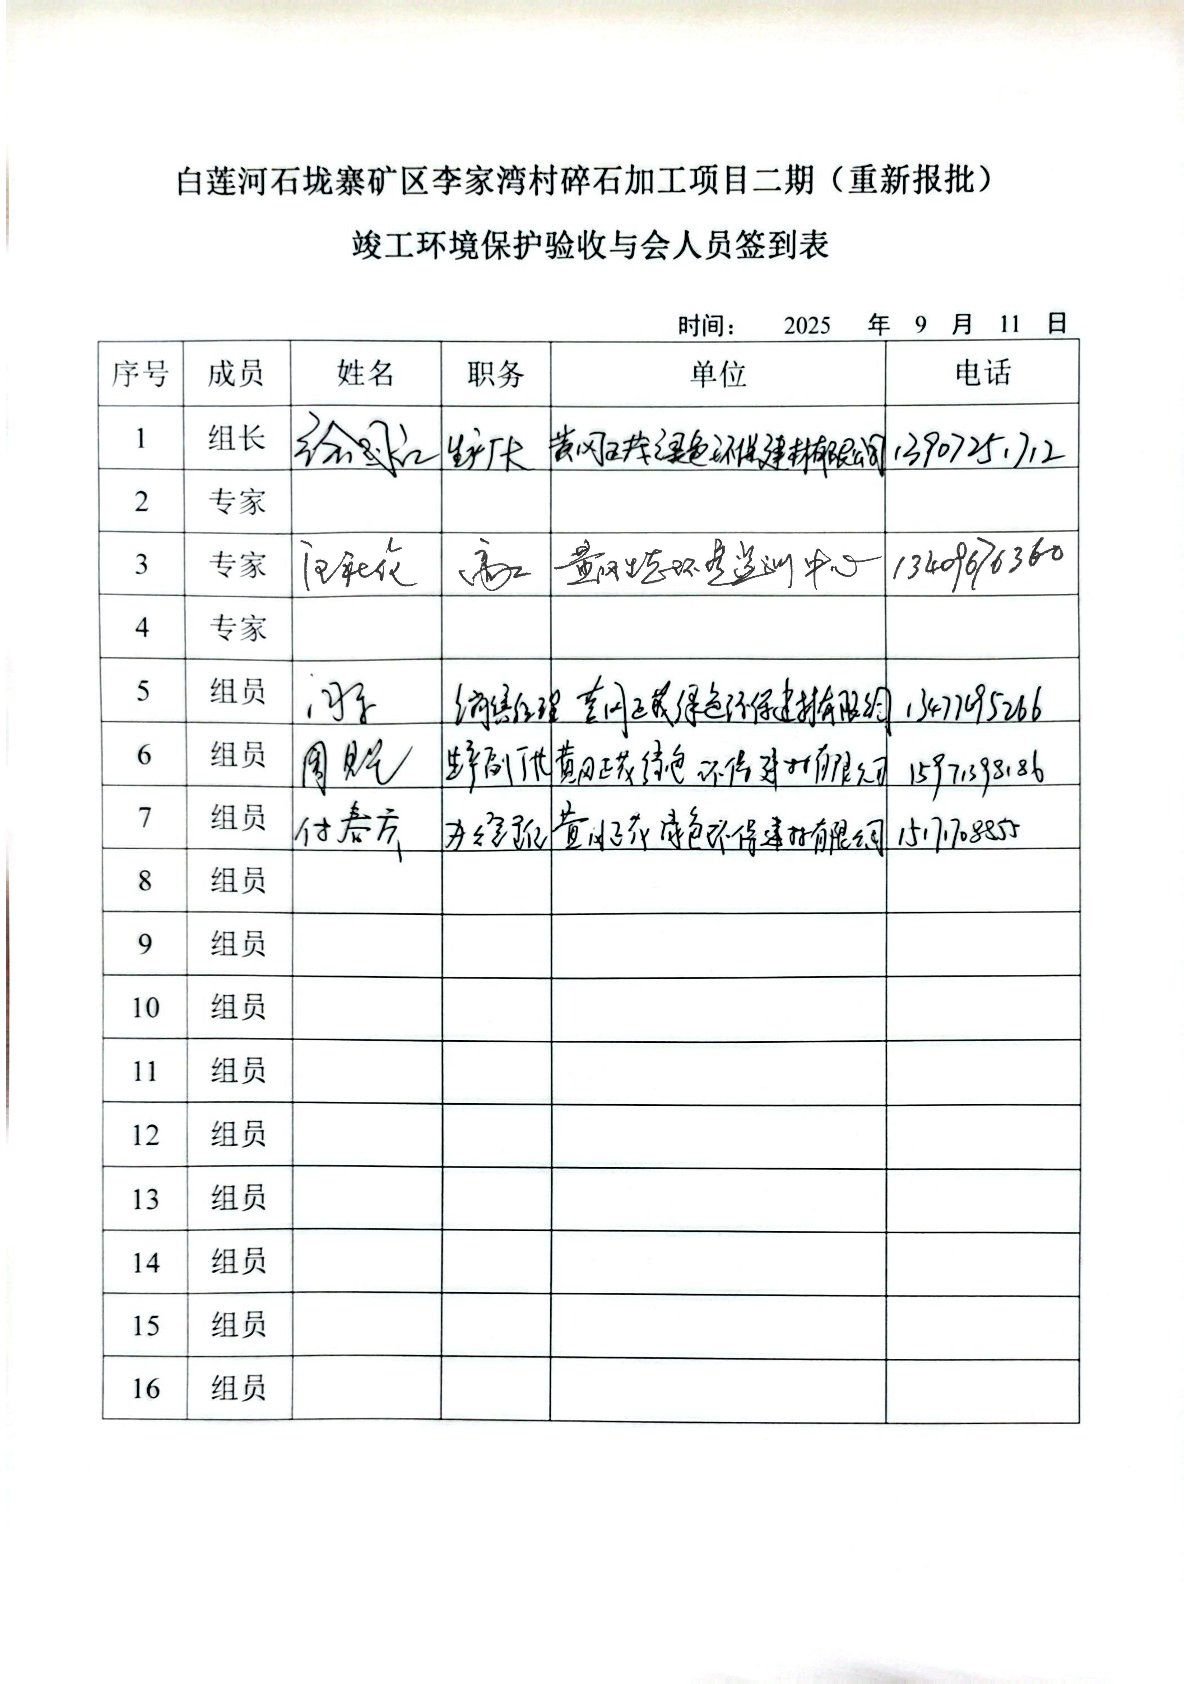 白莲河石垅寨矿区李家湾村碎石加工项目二期（重新报批）
竣工环境保护验收与会人员签到表
时间： 2025 年 9 月 11 日
序号 成员 姓名 职务 单位 电话
1 组长 生产厂长 黄冈正茂绿色环保建材有限公司 13907251712
2 专家
3 专家 高工 黄冈生态环境监测中心 13409676360
4 专家
5 组员 经理 黄冈正茂绿色环保建材有限公司 13477695266
6 组员 生产副厂长 黄冈正茂绿色环保建材有限公司 15971398186
7 组员 付春 黄冈正茂绿色环保建材有限公司 15171708855
8 组员
9 组员
10 组员
11 组员
12 组员
13 组员
14 组员
15 组员
16 组员